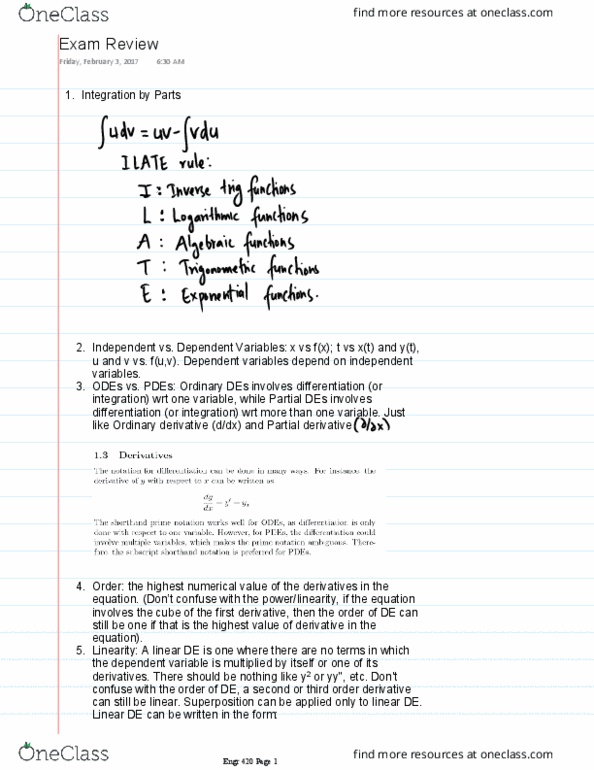 OneClass
find more resources at oneclass.com
Exam Review
Friday, February 3, 2017 6:30 AM
1. Integration by Parts
∫udv = uv-∫vdu
ILATE rule:
I : Inverse trig functions
L : Logarithmic functions
A : Algebraic functions
T : Trigonometric functions
E : Exponential functions.
2. Independent vs. Dependent Variables: x vs f(x); t vs x(t) and y(t),
u and v vs. f(u,v). Dependent variables depend on independent
variables.
3. ODEs vs. PDEs: Ordinary DEs involves differentiation (or
integration) wrt one variable, while Partial DEs involves
differentiation (or integration) wrt more than one variable. Just
like Ordinary derivative (d/dx) and Partial derivative (∂/∂x)
1.3 Derivatives
The notation for differentiation can be done in many ways. For instance the
derivative of y with respect to x can be written as
dy/dx = y′ = yₓ
The shorthand prime notation works well for ODEs, as differentiation is only
done with respect to one variable. However, for PDEs, the differentiation could
involve multiple variables, which makes the prime notation ambiguous. There-
fore the subscript shorthand notation is preferred for PDEs.
4. Order: the highest numerical value of the derivatives in the
equation. (Don't confuse with the power/linearity, if the equation
involves the cube of the first derivative, then the order of DE can
still be one if that is the highest value of derivative in the
equation).
5. Linearity: A linear DE is one where there are no terms in which
the dependent variable is multiplied by itself or one of its
derivatives. There should be nothing like y² or yy", etc. Don't
confuse with the order of DE, a second or third order derivative
can still be linear. Superposition can be applied only to linear DE.
Linear DE can be written in the form:
OneClass
Engr 420 Page 1
find more resources at oneclass.com